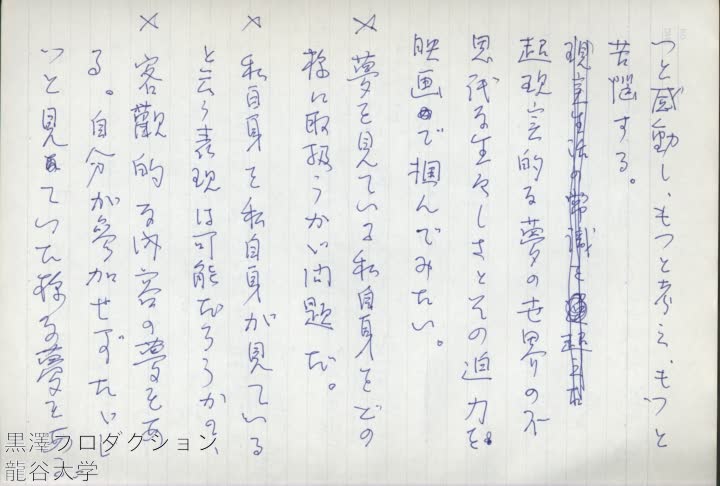 つと感動し、もつと考え、もつと
苦悩する。
現実生活の常識を超えた
超現実的な夢の世界の不
思ギな生々しさとその迫力を
映画で掴んでみたい。
× 夢を見ている私自身をどの
様に取扱うかが問題だ。
× 私自身を私自身が見ている
と云う表現は可能だろうか。
× 客觀的な内容の夢を
る。自分が参加せずたいし
つと見ていた様な夢を
黒澤プロダクション
龍谷大学